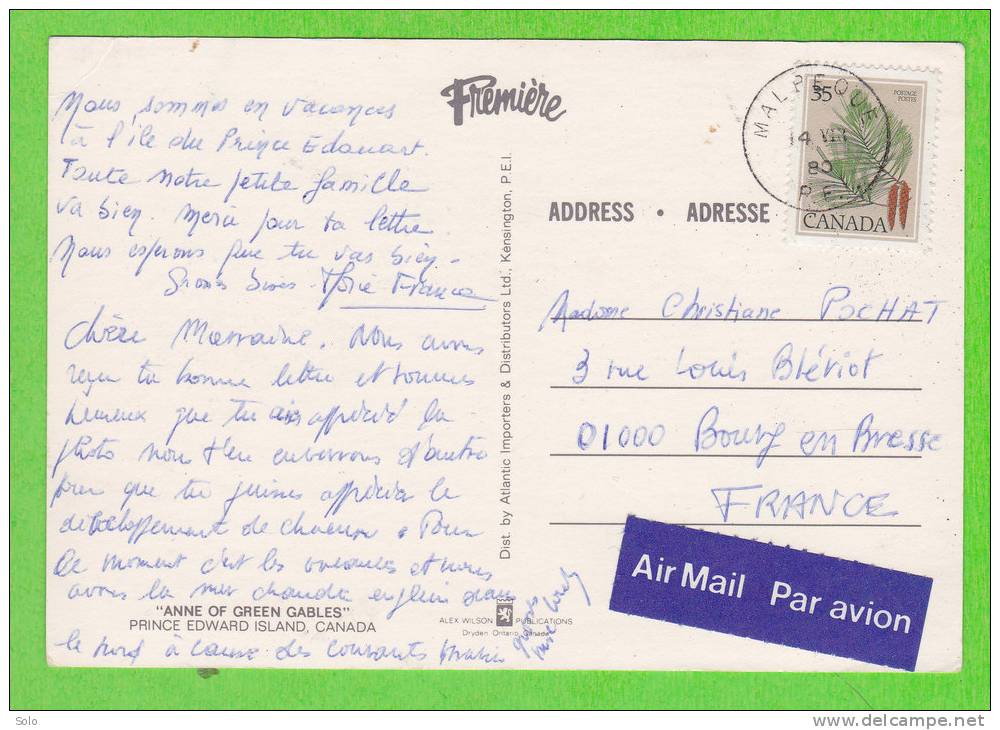 Nous sommes en vacances
à l'île du Prince Edouart.
Toute notre petite famille
va bien. Merci pour ta lettre.
Nous esperons que tu vas bien.
Grosses bises. France
Chère Marraine. Nous avons
reçu ta bonne lettre et sommes
heureux que tu aies apprécié la
photo nous t'en enverrons d'autres
pour que tu puisses apprécier le
développement de chacun. Pour
le moment c'est les vacances et nous
avons la mer chaude en plein dans
le nord à cause des courants
grosses
"ANNE OF GREEN GABLES"
PRINCE EDWARD ISLAND, CANADA
Première
Dist. by Atlantic Importers & Distributors Ltd., Kensington, P.E.I.
ALEX WILSON PUBLICATIONS
Dryden, Ontario, Canada
MALPEQUE
14 VII
80
P.E.I.
35
POSTAGE
POSTES
CANADA
ADDRESS • ADRESSE
Madame Christiane POCHAT
3 rue Louis Blériot
01000 Bourg en Bresse
FRANCE
Air Mail Par avion
Solo
www.delcampe.net